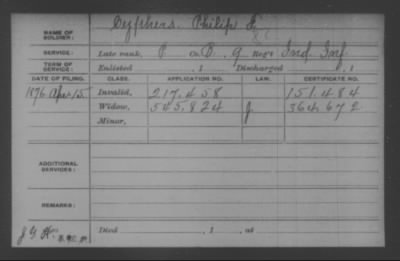 NAME OF SOLDIER: Cyphers, Philip
SERVICE: Late rank, P Co. C, 9 Reg't Ind Inf
TERM OF SERVICE: Enlisted , 1 Discharged , 1
DATE OF FILING. CLASS. APPLICATION NO. LAW. CERTIFICATE NO.
1876 Apr 15 Invalid, 217,458 151,484
Widow, 545,824 J. 364,672
Minor,
ADDITIONAL SERVICES:
REMARKS:
Died , 1 , at